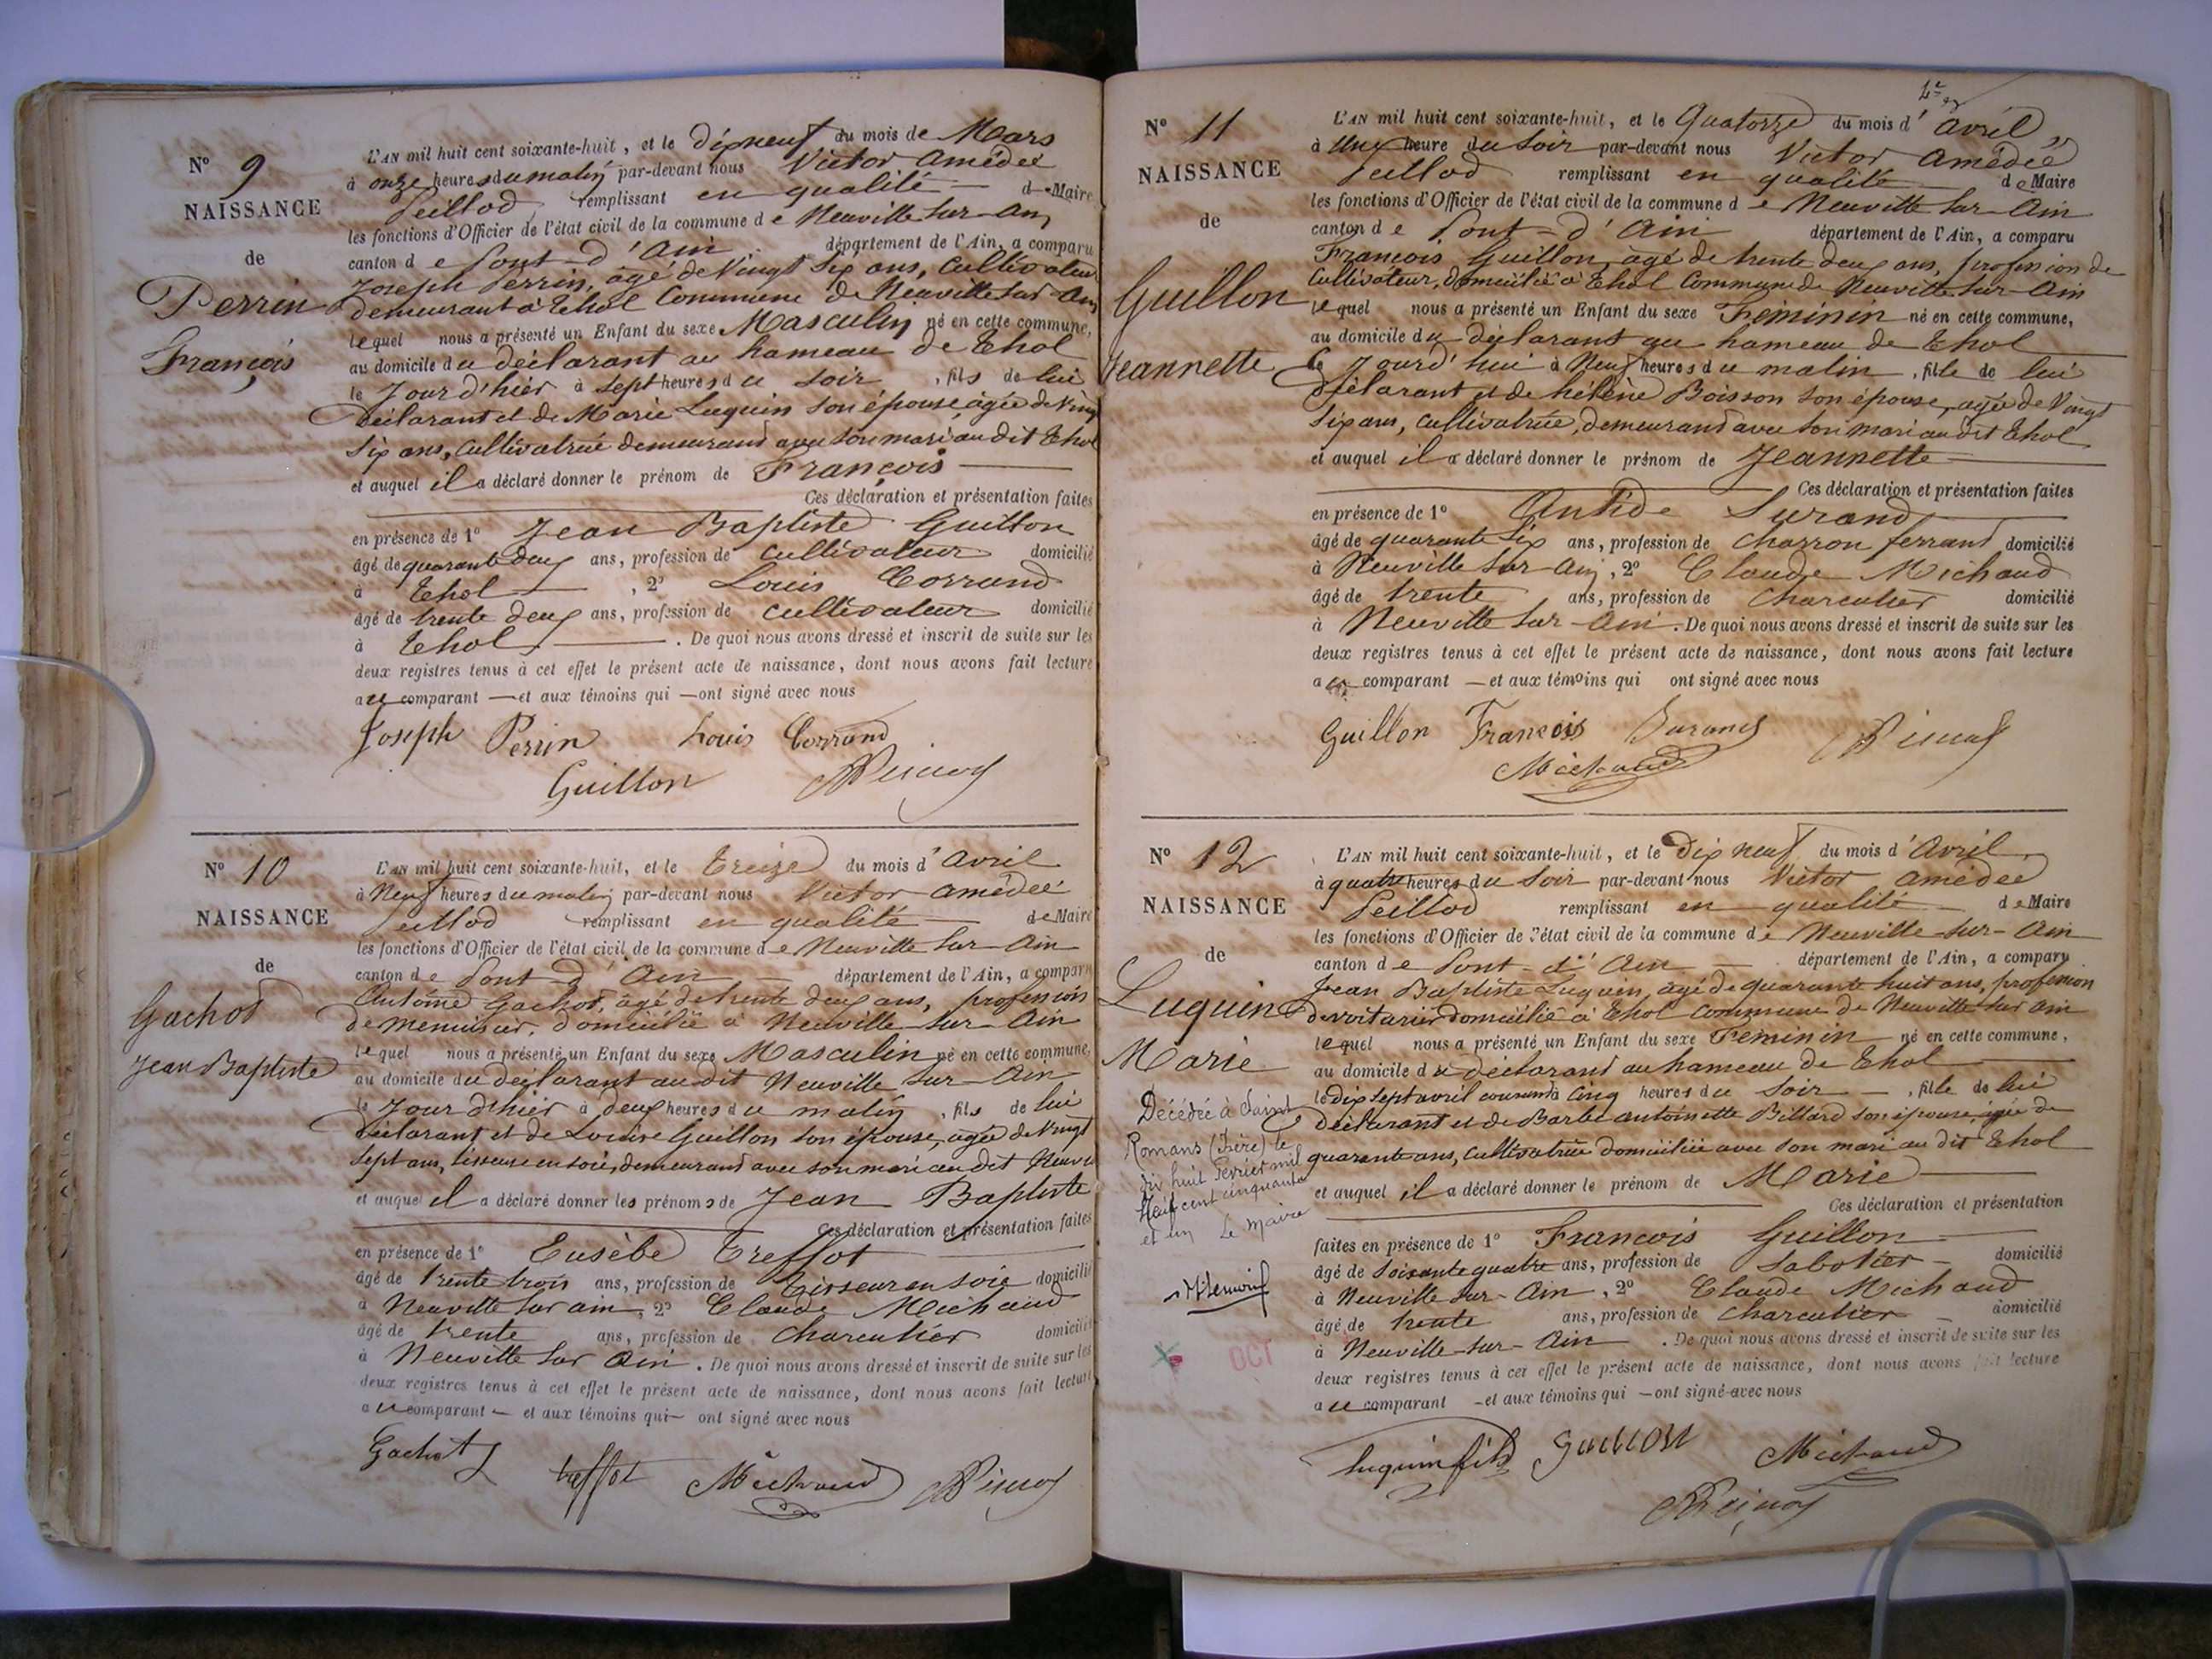 N° 9
NAISSANCE
de
Perrin
François
L'AN mil huit cent soixante-huit, et le dix neuf du mois de Mars
à onze heures du matin par-devant nous Victor Amédée
Peillod remplissant en qualité de Maire
les fonctions d'Officier de l'état civil de la commune de Neuville sur Ain
canton de Pont-d'Ain département de l'Ain, a comparu
Joseph Perrin, âgé de Vingt six ans, Cultivateur
demeurant à Thol Commune de Neuville sur Ain
lequel nous a présenté un Enfant du sexe Masculin né en cette commune,
au domicile du déclarant au hameau de Thol
le Jour d'hier à sept heures du soir, fils de lui
déclarant et de Marie Luquin son épouse âgée de Vingt
six ans, cultivatrice demeurant avec son mari au dit Thol
et auquel il a déclaré donner le prénom de François
Ces déclaration et présentation faites
en présence de 1° Jean Baptiste Guillon
âgé de quarante deux ans, profession de cultivateur domicilié
à Thol, 2° Louis Corrand
âgé de trente deux ans, profession de cultivateur domicilié
à Thol. De quoi nous avons dressé et inscrit de suite sur les
deux registres tenus à cet effet le présent acte de naissance, dont nous avons fait lecture
au comparant — et aux témoins qui — ont signé avec nous
Joseph Perrin Louis Corrand
Guillon
N° 10
NAISSANCE
de
Gachot
Jean Baptiste
L'AN mil huit cent soixante-huit, et le Treize du mois d'Avril
à Neuf heures du matin par-devant nous Victor Amédée
Peillod remplissant en qualité de Maire
les fonctions d'Officier de l'état civil de la commune de Neuville sur Ain
canton de Pont-d'Ain département de l'Ain, a comparu
Antoine Gachot, âgé de trente deux ans, profession
de menuisier, domicilié à Neuville sur Ain
lequel nous a présenté un Enfant du sexe Masculin né en cette commune,
au domicile du déclarant au dit Neuville sur Ain
le Jour d'hier à deux heures du matin, fils de lui
déclarant et de Louise Guillon son épouse, âgée de Vingt
sept ans, tisseuse en soie, demeurant avec son mari au dit Neuville
et auquel il a déclaré donner les prénoms de Jean Baptiste
Ces déclaration et présentation faites
en présence de 1° Eusèbe Treffot
âgé de trente trois ans, profession de Tisseur en soie domicilié
à Neuville sur Ain, 2° Claude Michaud
âgé de trente ans, profession de charcutier domicilié
à Neuville sur Ain. De quoi nous avons dressé et inscrit de suite sur les
deux registres tenus à cet effet le présent acte de naissance, dont nous avons fait lecture
au comparant — et aux témoins qui — ont signé avec nous
Gachot
treffot Michaud
N° 11
NAISSANCE
de
Guillon
Jeannette
L'AN mil huit cent soixante-huit, et le Quatorze du mois d'Avril
à Une heure du Soir par-devant nous Victor Amédée
Peillod remplissant en qualité de Maire
les fonctions d'Officier de l'état civil de la commune de Neuville sur Ain
canton de Pont-d'Ain département de l'Ain, a comparu
François Guillon, âgé de trente deux ans, profession de
Cultivateur, domicilié à Thol Commune de Neuville sur Ain
lequel nous a présenté un Enfant du sexe Féminin né en cette commune,
au domicile du déclarant au hameau de Thol
le Jourd'hui à Neuf heures du matin, fille de lui
déclarant et de hélène Boisson son épouse, âgée de Vingt
six ans, cultivatrice, demeurant avec son mari au dit Thol
et auquel il a déclaré donner le prénom de Jeannette
Ces déclaration et présentation faites
en présence de 1° Antide Durand
âgé de quarante six ans, profession de charron ferrant domicilié
à Neuville sur Ain, 2° Claude Michaud
âgé de trente ans, profession de charcutier domicilié
à Neuville sur Ain. De quoi nous avons dressé et inscrit de suite sur les
deux registres tenus à cet effet le présent acte de naissance, dont nous avons fait lecture
au comparant — et aux témoins qui ont signé avec nous
Guillon François Durand
Michaud
N° 12
NAISSANCE
de
Luquin
Marie
Décédée à Saint
Romans (Isère) le
dix huit Février mil
Neuf cent cinquante
et un Le Maire
OCT
L'AN mil huit cent soixante-huit, et le Dix neuf du mois d'Avril
à quatre heures du Soir par-devant nous Victor Amédée
Peillod remplissant en qualité de Maire
les fonctions d'Officier de l'état civil de la commune de Neuville-sur-Ain
canton de Pont-d'Ain département de l'Ain, a comparu
Jean Baptiste Luquin, âgé de quarante huit ans, profession
de voiturier domicilié à Thol Commune de Neuville sur Ain
lequel nous a présenté un Enfant du sexe Féminin né en cette commune,
au domicile du déclarant au hameau de Thol
le dix sept avril courant à Cinq heures du Soir, fille de lui
déclarant et de Barbe Antoinette Billard son épouse, âgée de
quarante ans, Cultivatrice domiciliée avec son mari au dit Thol
et auquel il a déclaré donner le prénom de Marie
Ces déclaration et présentation
faites en présence de 1° François Guillon
âgé de soixante quatre ans, profession de sabotier domicilié
à Neuville sur Ain, 2° Claude Michaud
âgé de trente ans, profession de charcutier domicilié
à Neuville-sur-Ain. De quoi nous avons dressé et inscrit de suite sur les
deux registres tenus à cet effet le présent acte de naissance, dont nous avons fait lecture
au comparant — et aux témoins qui — ont signé avec nous
Luquin fils Guillon Michaud